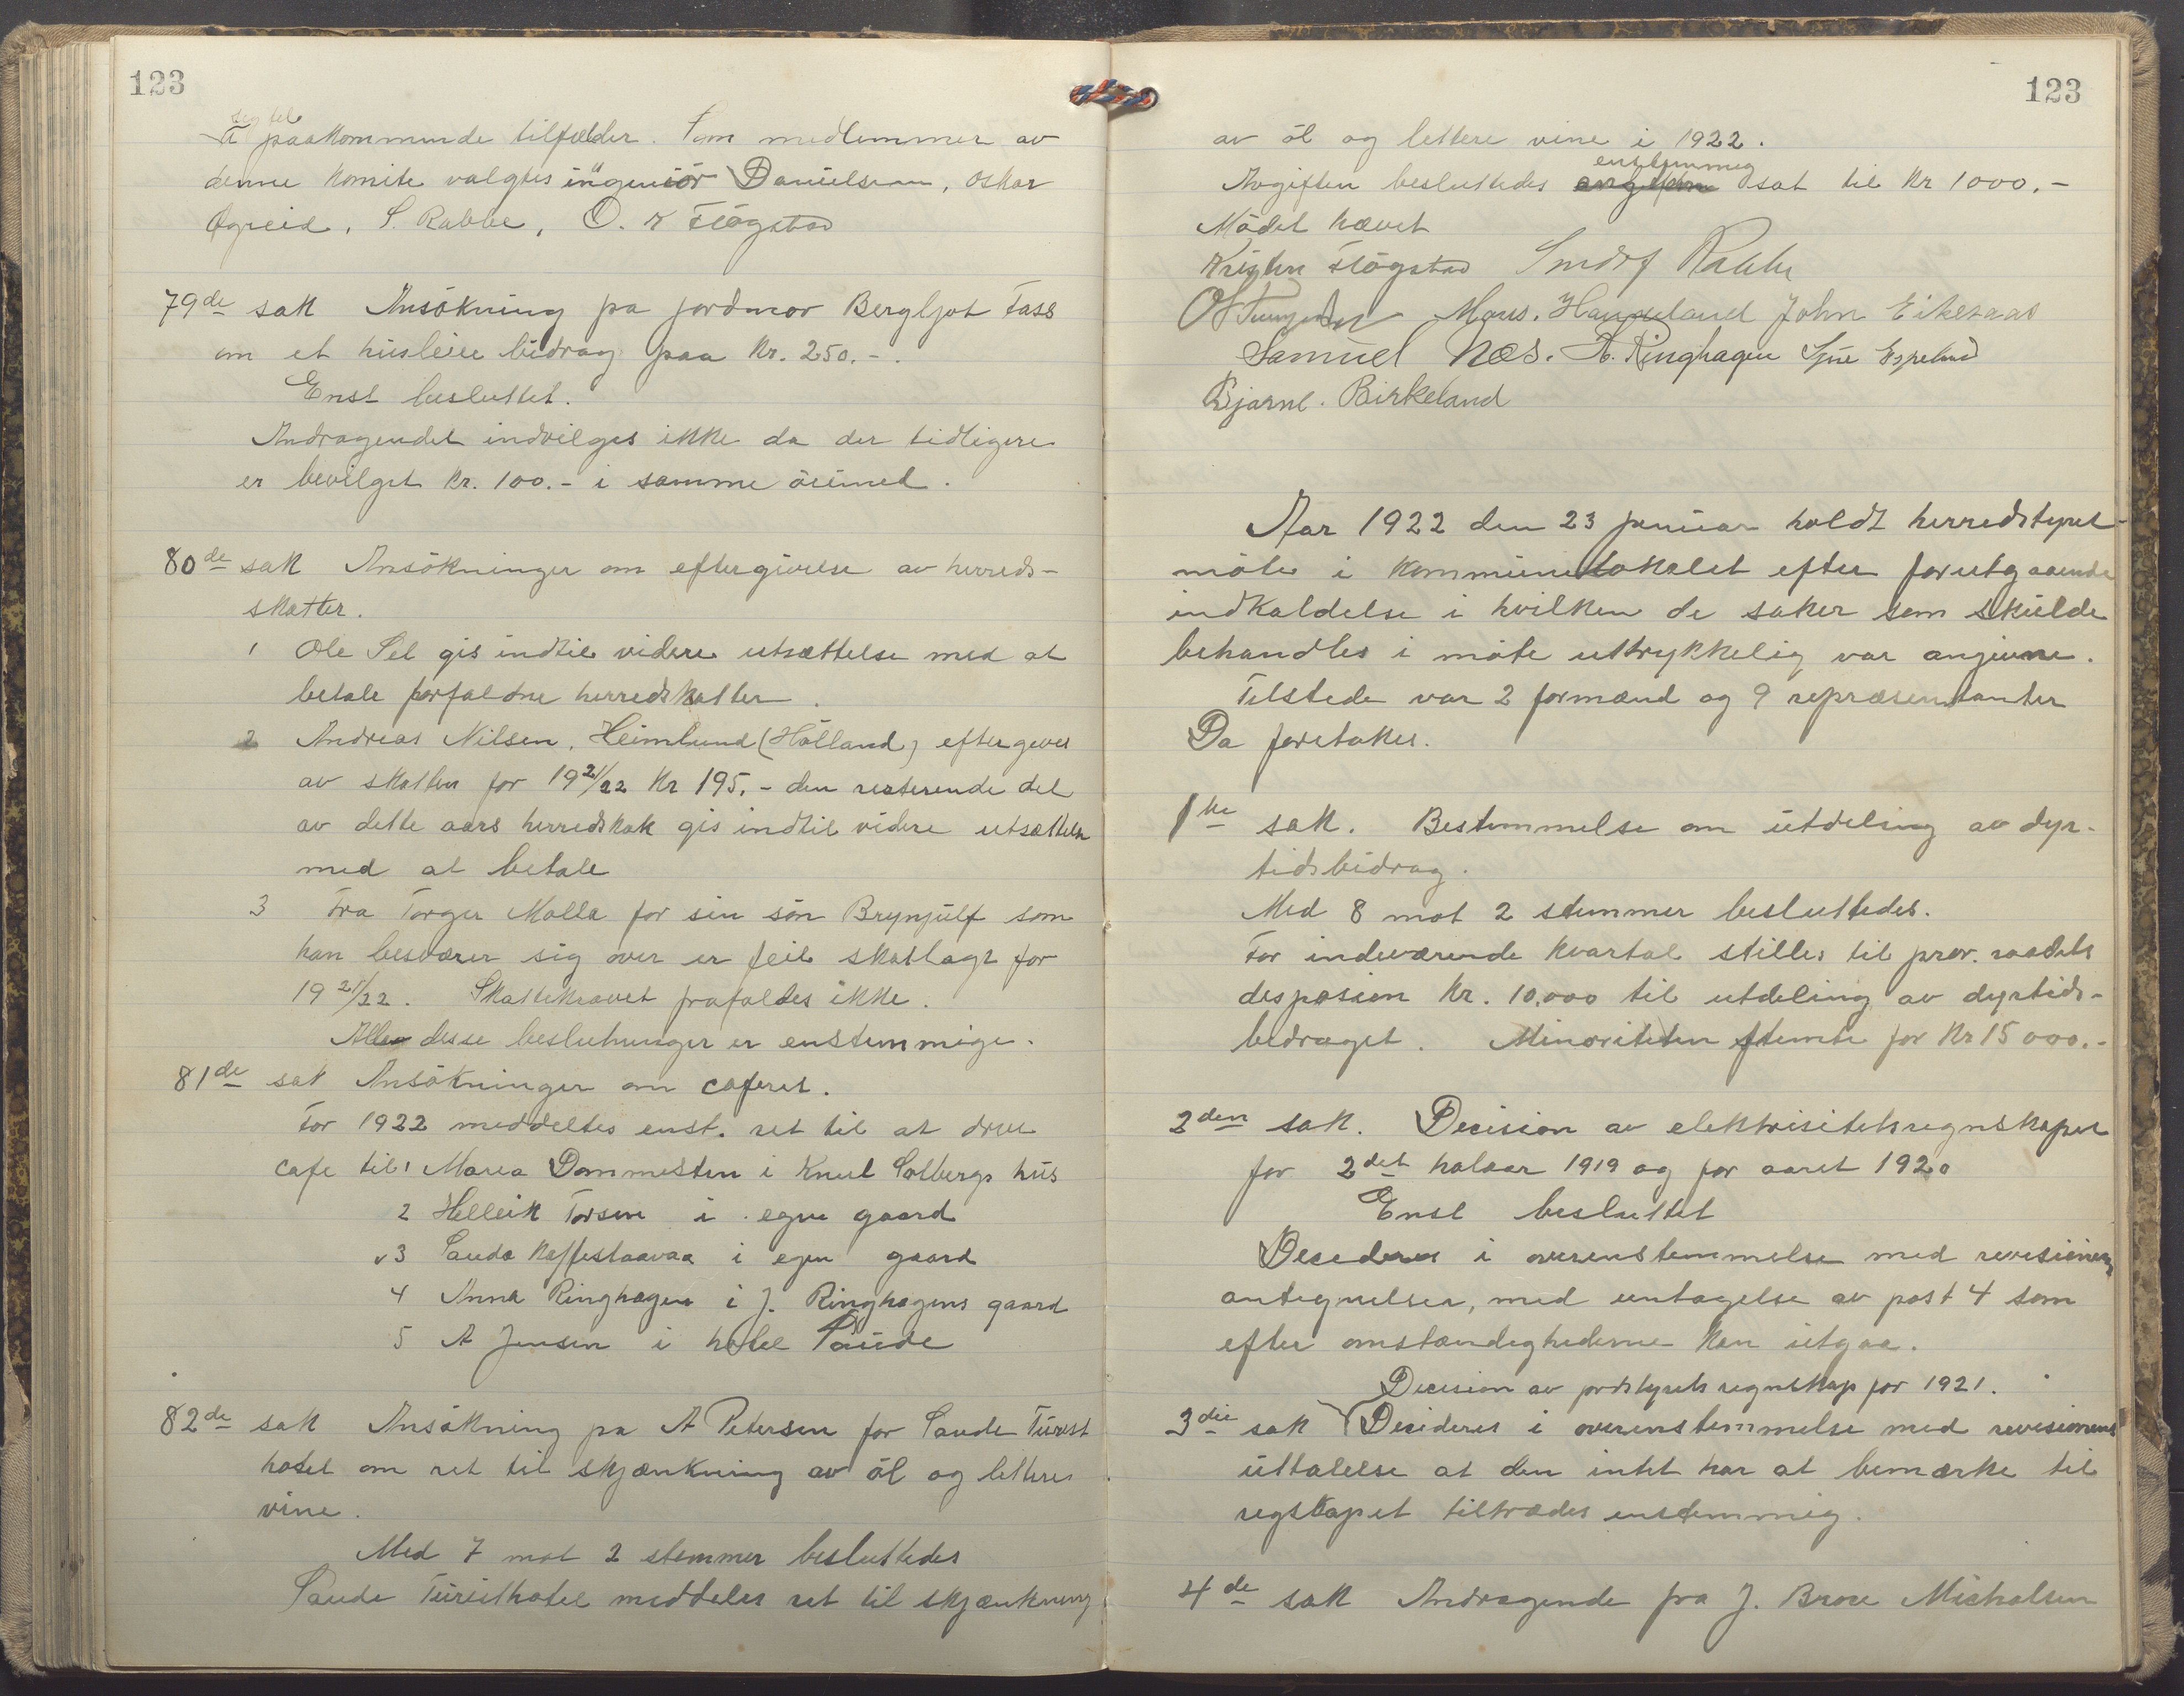 123
sig til
paakommende tilfælder. Som medlemmer av
denne komite valgtes ingeniör Danielsen, Oskar
Øgreid, S. Rabbe, O. K Fløgstad
79de sak Ansökning fra jordmor Bergljot Fass
om et husleie bidrag paa Kr. 250.-.
Enst besluttet.
Andragendet indvilges ikke da der tidligere
er bevilget kr. 100.- i samme öiemed.
80de sak Ansökninger om eftergivelse av herreds-
skatter.
1 Ole Sel gis indtil videre utsættelse med at
betale forfaldne herredskatter.
2 Andreas Nilsen, Heimlund (Hölland) eftergives
av skatten for 1921/22 Kr 195.- den resterende del
av dette aars herredskat gis indtil videre utsættelse
med at betale
3 Fra Torger Molla for sin sön Brynjulf som
han besværer sig over er feil skatlagt for
1921/22. Skattekravet frafaldes ikke.
Alle disse beslutninger er enstemmige.
81de sak Ansökninger om caferet.
For 1922 meddeltes enst. ret til at drive
cafe til 1 Maria Dommesten i Knut Solbergs hus
2 Helleik Torsen i egen gaard
v3 Sauda Kaffestaavaa i egen gaard
4 Anna Ringhagen i J. Ringhagens gaard
5 A Jensen i hotel Saude
82de sak Ansökning fra A Petersen for Saude Turist
hotel om ret til skjænkning av öl og lettere
vine.
Med 7 mot 2 stemmer besluttedes
Saude Turisthotel meddeles ret til skjænkning
123
av öl og lettere vine i 1922.
enstemmig
Avgiften besluttedes sat til Kr 1000.-
Mödet hævet
Kristen Flögstad Sndrf Rabbe
Mons. Handeland John Eikesaas
Samuel Næs. A. Ringhagen Espeland
Bjarne. Birkeland
Aar 1922 den 23 januar holdt herredstyret
möte i kommunelokalet efter forutgaaende
indkaldelse i hvilken de saker som skulde
behandles i möte uttrykkelig var angivne.
Tilstede var 2 formænd og 9 repræsentanter
Da foretokes.
1ste sak. Bestemmelse om utdeling av dyr-
tidsbidrag.
Med 8 mot 2 stemmer besluttedes.
For indeværende kvartal stilles til prov. raadets
desposion kr. 10,000 til utdeling av dyrtids-
bidraget. Minoriteten stemte for Kr 15000.-
2den sak. Decision av elektrisitetsregnskapet
for 2det halvaar 1919 og for aaret 1920
Enst besluttet
Desederes i overenstemmelse med revisionens
antegnelser, med untagelse av post 4 som
efter omstændighederne kan utgaa.
Decision av jordstyrets regnskap for 1921.
3die sak Desideres i overenstemmelse med revisionens
uttalelse at den intet har at bemærke til
regskapet tiltrædes enstemmig.
4de sak Andragende fra J. Brose Michalsen